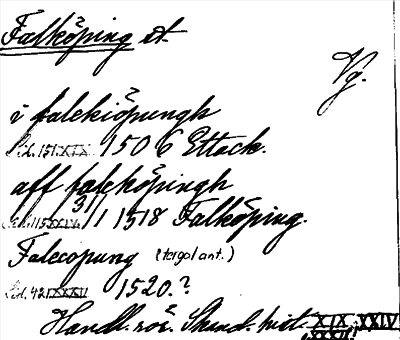 Falköping st.
Vg.
i falekiöpungh
Sid. 151 XIX. 1506 Ettack.
aff faleköpingh
Sid. 115 XXIV. 31/1 1518 Falköping.
Falecopung (tergo ant.)
Sid. 42 XXXII 1520.?
Handl. rör. Skand. hist. XIX, XXIV
XXXII.